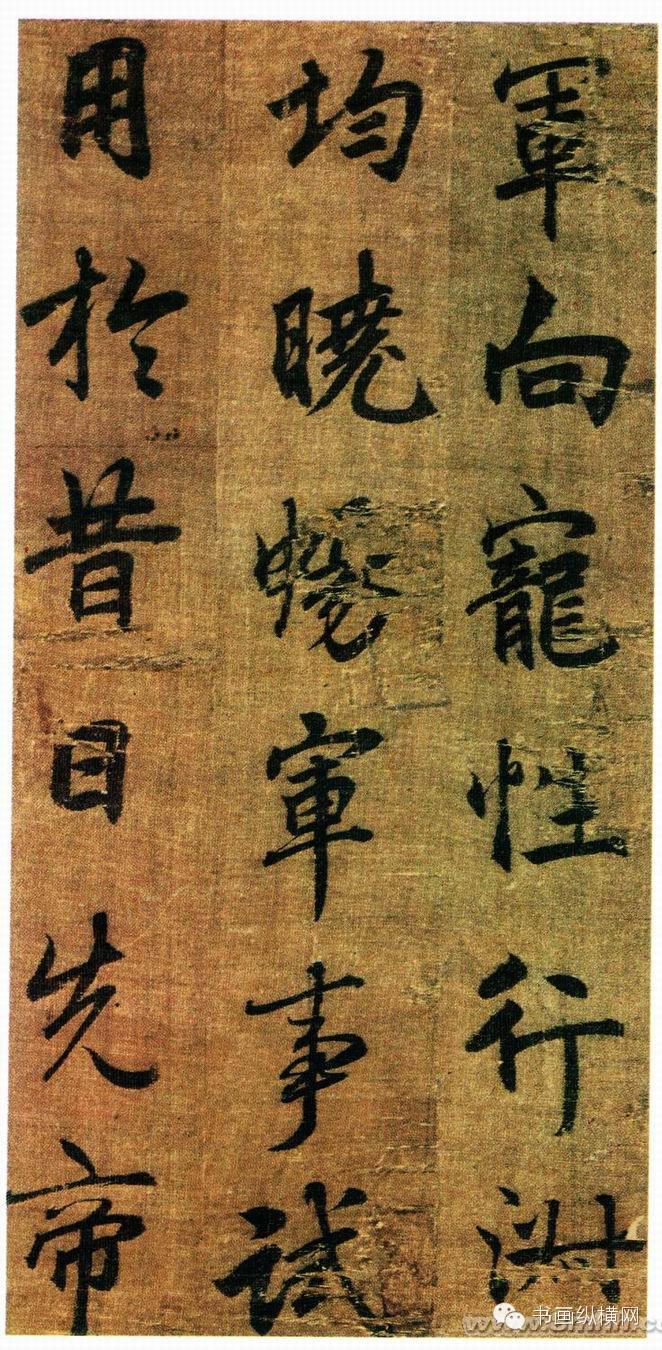 軍向寵性行淑
均曉暢軍事試
用於昔日先帝
书画纵横网